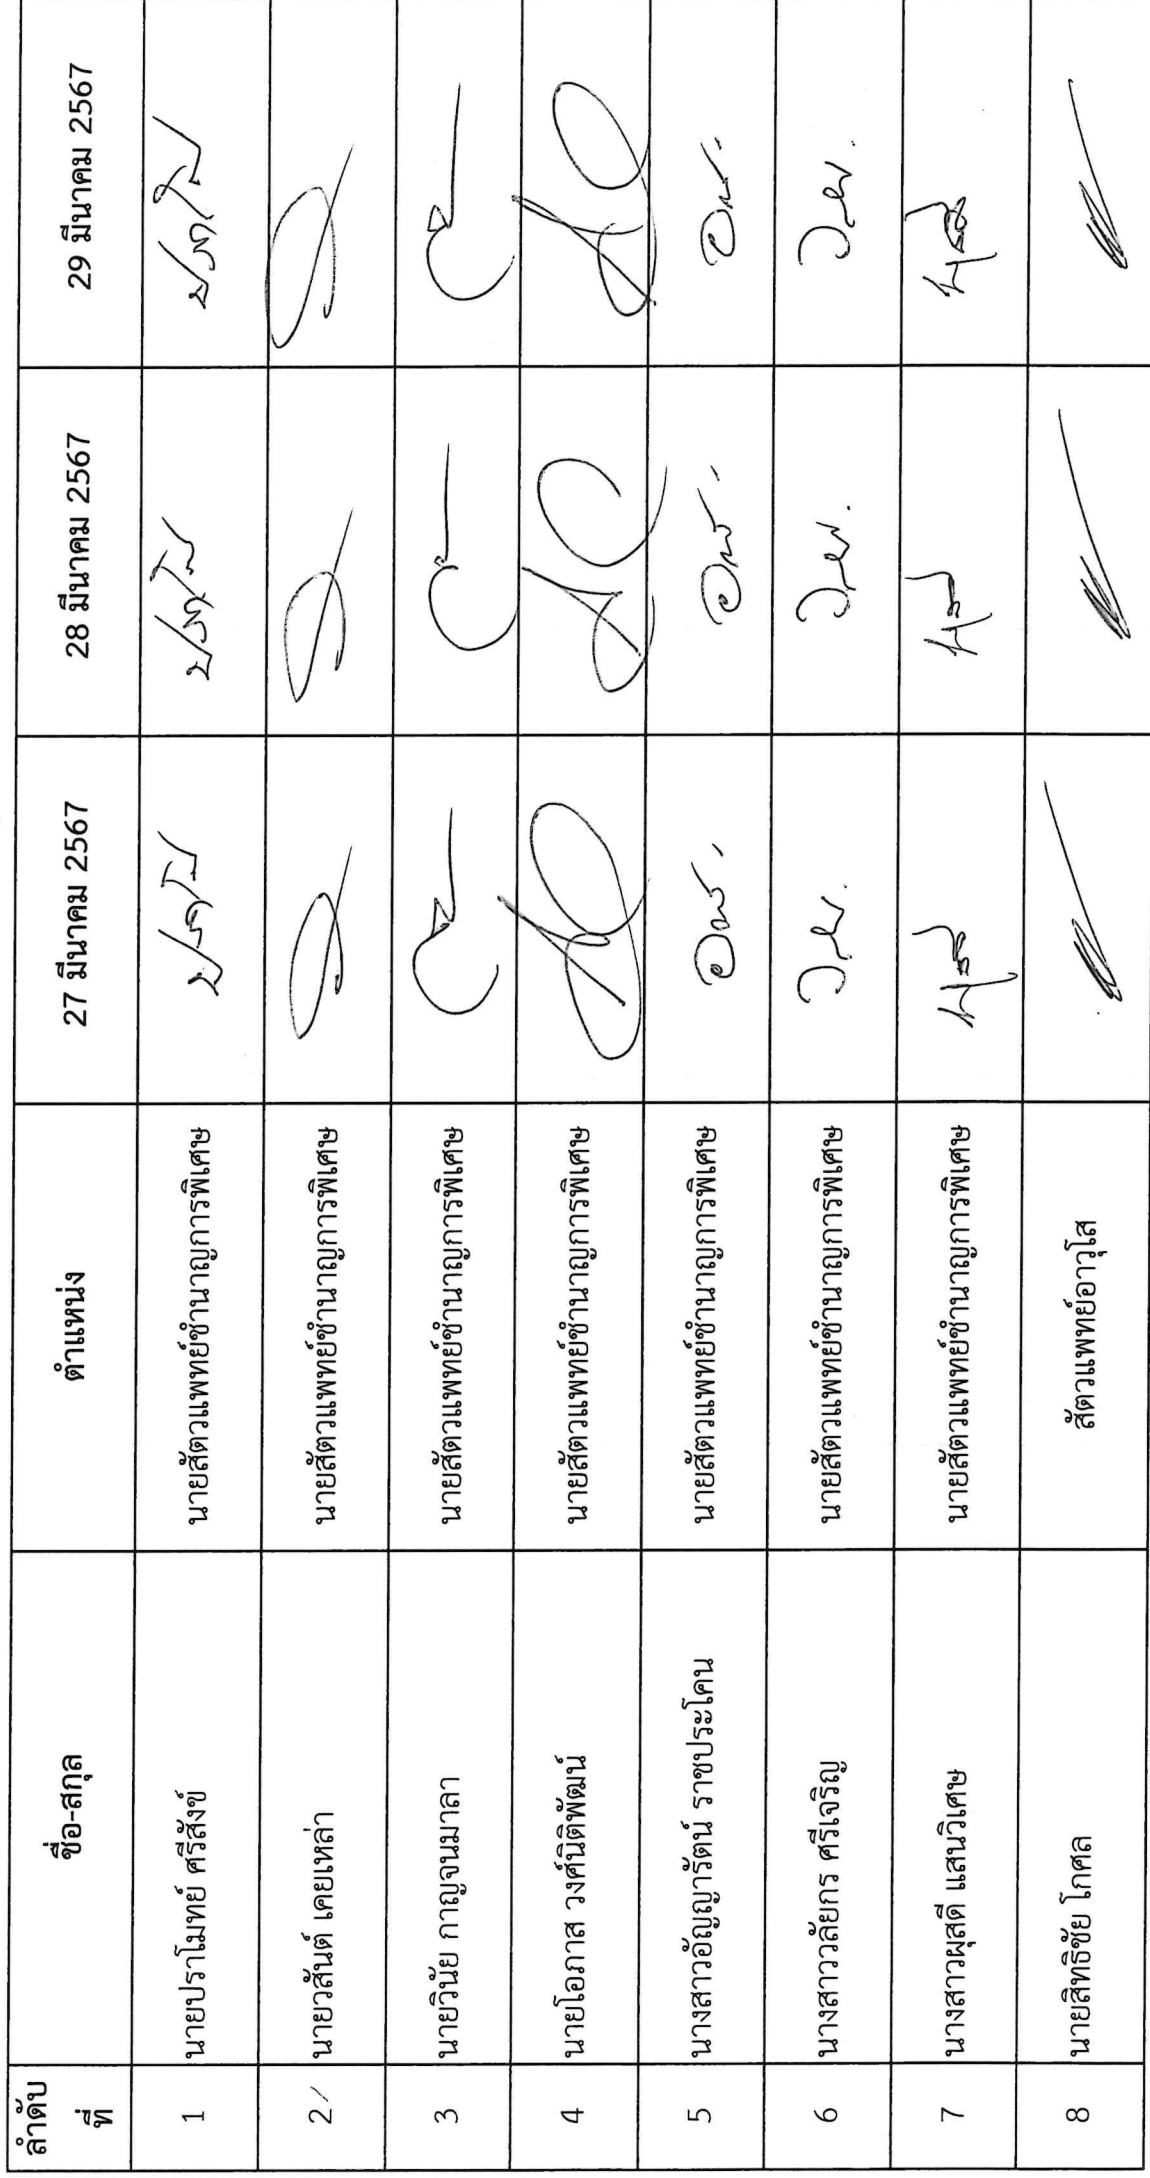 ลำดับที่ ชื่อ-สกุล ตำแหน่ง 27 มีนาคม 2567 28 มีนาคม 2567 29 มีนาคม 2567
1 นายปราโมทย์ ศรีสังข์ นายสัตวแพทย์ชำนาญการพิเศษ
2 นายวสันต์ เคยเหล่า นายสัตวแพทย์ชำนาญการพิเศษ
3 นายวินัย กาญจนมาลา นายสัตวแพทย์ชำนาญการพิเศษ
4 นายโอภาส วงศ์นิติพัฒน์ นายสัตวแพทย์ชำนาญการพิเศษ
5 นางสาวอัญญารัตน์ ราชประโคน นายสัตวแพทย์ชำนาญการพิเศษ
6 นางสาววลัยกร ศรีเจริญ นายสัตวแพทย์ชำนาญการพิเศษ
7 นางสาวผุสดี แสนวิเศษ นายสัตวแพทย์ชำนาญการพิเศษ
8 นายสิทธิชัย โกศล สัตวแพทย์อาวุโส